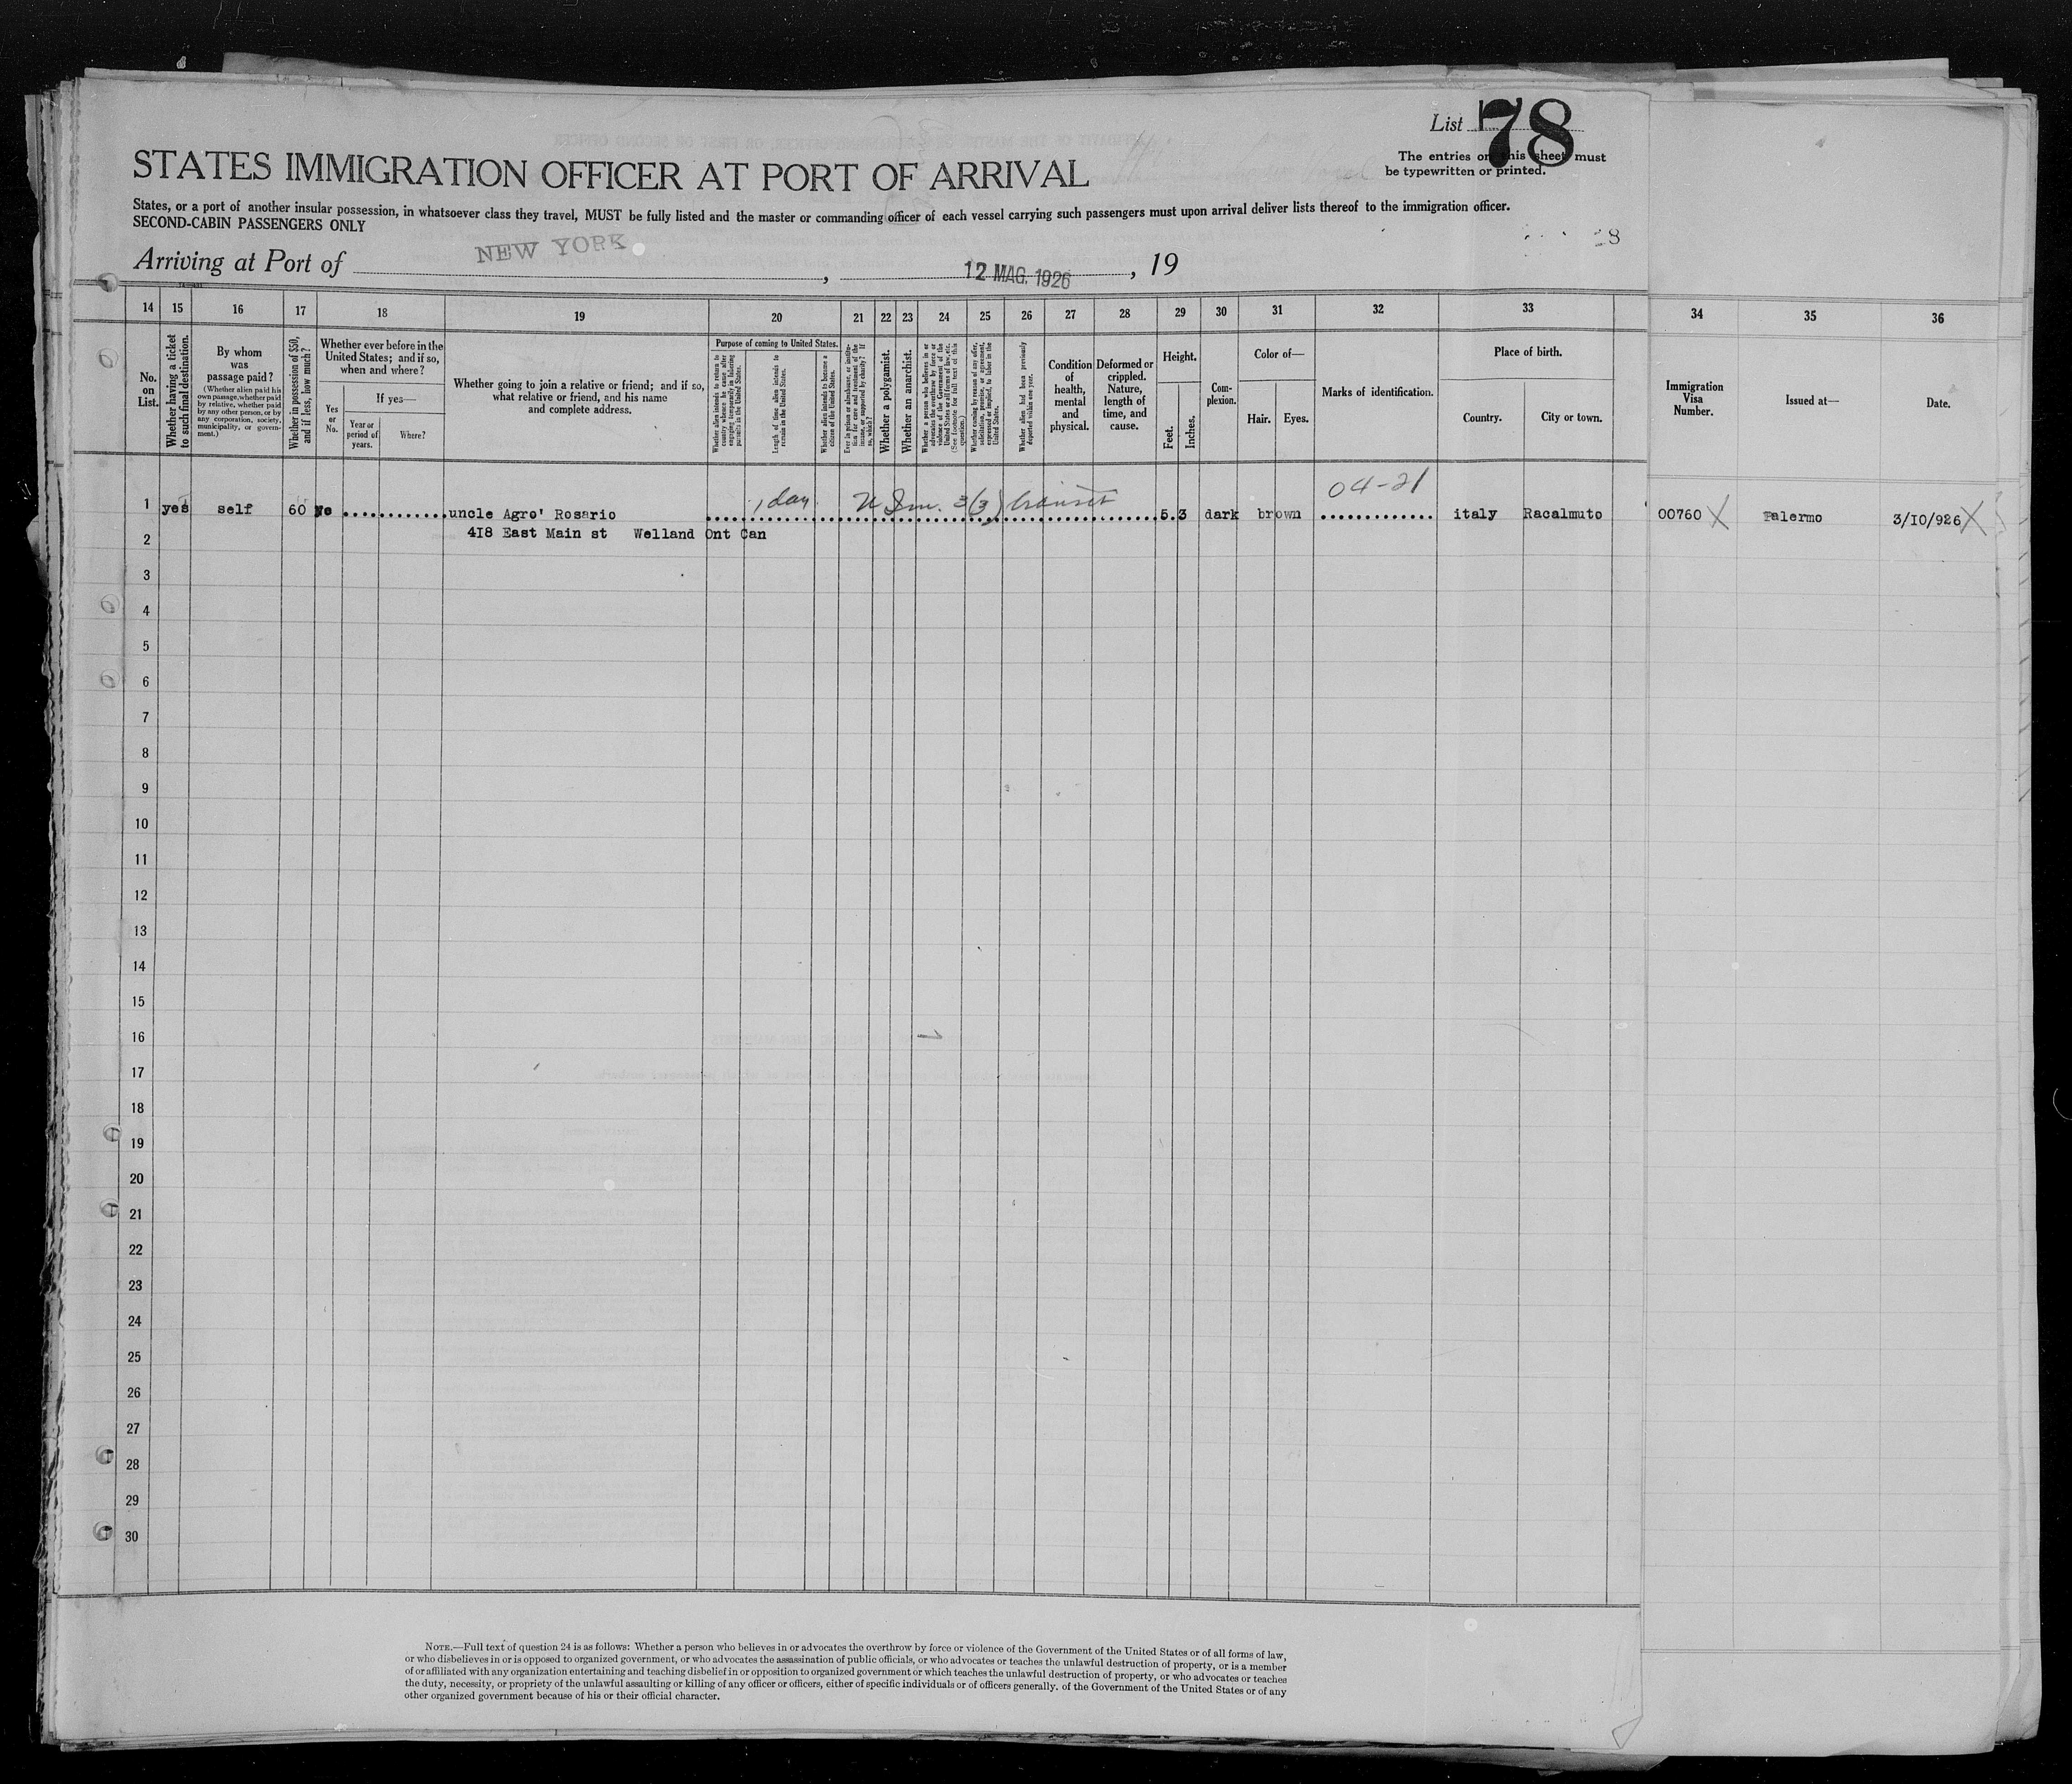 List 78
The entries on this sheet must
be typewritten or printed.
STATES IMMIGRATION OFFICER AT PORT OF ARRIVAL
States, or a port of another insular possession, in whatsoever class they travel, MUST be fully listed and the master or commanding officer of each vessel carrying such passengers must upon arrival deliver lists thereof to the immigration officer.
SECOND-CABIN PASSENGERS ONLY
Arriving at Port of NEW YORK, 12 MAG. 1926, 19
14 15 16 17 18 19 20 21 22 23 24 25 26 27 28 29 30 31 32 33 34 35 36
No.
on
List.
Whether having a ticket
to such final destination.
By whom
was
passage paid?
(Whether alien paid his
own passage, whether paid
by relative, whether paid
by any other person, or by
any corporation, society,
municipality, or govern-
ment.)
Whether in possession of $50,
and if less, how much?
Whether ever before in the
United States; and if so,
when and where?
Yes
or
No.
If yes—
Year or
period of
years.
Where?
Whether going to join a relative or friend; and if so,
what relative or friend, and his name
and complete address.
Purpose of coming to United States.
Whether alien intends to return to
country whence he came after
engaging temporarily in laboring
pursuits in the United States.
Length of time alien intends to
remain in the United States.
Whether alien intends to become a
citizen of the United States.
Ever in prison or almshouse, or institu-
tion for care and treatment of the
insane, or supported by charity? If
so, which?
Whether a polygamist.
Whether an anarchist.
Whether a person who believes in or
advocates the overthrow by force or
violence of the Government of the
United States or all forms of law, etc.
(See footnote for full text of this
question.)
Whether coming by reason of any offer,
solicitation, promise, or agreement,
expressed or implied, to labor in the
United States.
Whether alien had been previously
deported within one year.
Condition
of
health,
mental
and
physical.
Deformed or
crippled.
Nature,
length of
time, and
cause.
Height.
Feet.
Inches.
Com-
plexion.
Color of—
Hair.
Eyes.
Marks of identification.
Place of birth.
Country.
City or town.
Immigration
Visa
Number.
Issued at—
Date.
1 day 3(3) transit 04-21
1 yes self 60 No uncle Agro' Rosario 5.3 dark brown italy Racalmuto 00760 X Palermo 3/10/926 X
2 418 East Main st Welland Ont Can
3
4
5
6
7
8
9
10
11
12
13
14
15
16
17
18
19
20
21
22
23
24
25
26
27
28
29
30
NOTE.—Full text of question 24 is as follows: Whether a person who believes in or advocates the overthrow by force or violence of the Government of the United States or of all forms of law,
or who disbelieves in or is opposed to organized government, or who advocates the assassination of public officials, or who advocates or teaches the unlawful destruction of property, or is a member
of or affiliated with any organization entertaining and teaching disbelief in or opposition to organized government or which teaches the unlawful destruction of property, or who advocates or teaches
the duty, necessity, or propriety of the unlawful assaulting or killing of any officer or officers, either of specific individuals or of officers generally. of the Government of the United States or of any
other organized government because of his or their official character.